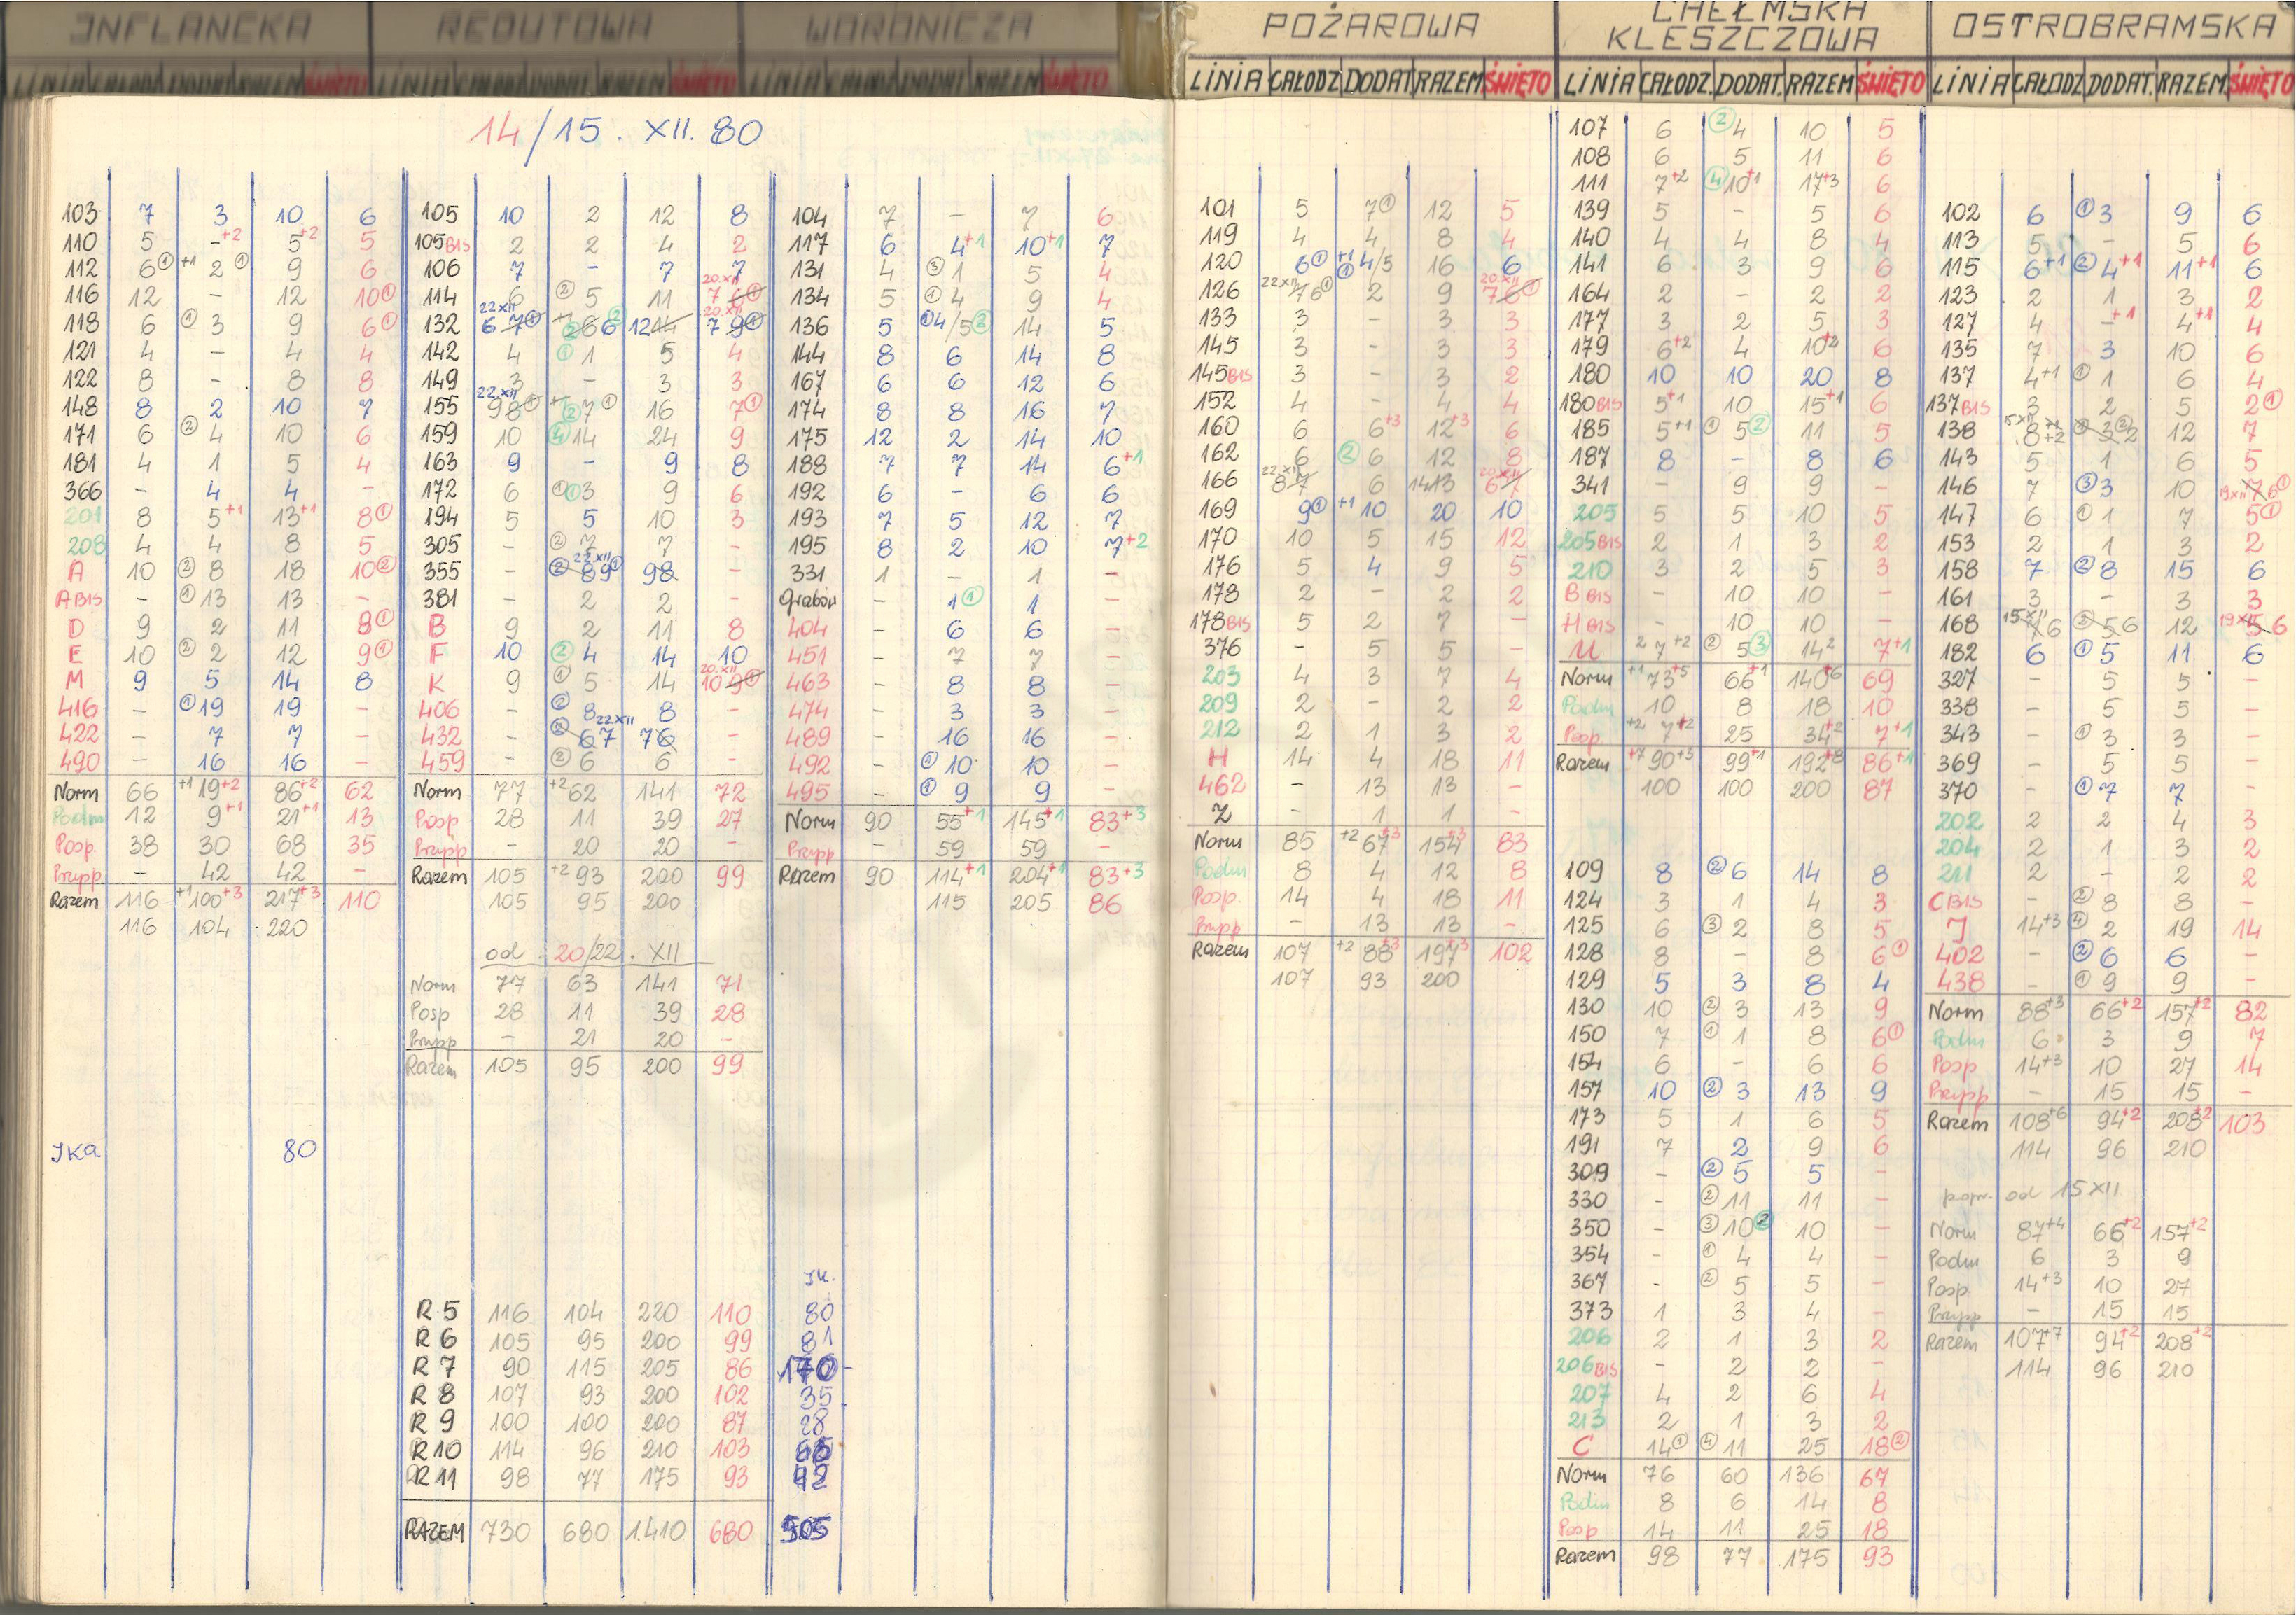 INFLANCKA
REDUTOWA
WORONICZA
POŻAROWA
CHEŁMSKA
KLESZCZOWA
OSTROBRAMSKA
LINIA CAŁODZ. DODAT. RAZEM ŚWIĘTO
LINIA CAŁODZ. DODAT. RAZEM ŚWIĘTO
LINIA CAŁODZ. DODAT. RAZEM ŚWIĘTO
LINIA CAŁODZ. DODAT. RAZEM ŚWIĘTO
LINIA CAŁODZ. DODAT. RAZEM ŚWIĘTO
LINIA CAŁODZ. DODAT. RAZEM ŚWIĘTO
14/15. XII. 80
103 7 3 10 6
110 5 - +2 5 +2 5
112 6 ① +1 2 ① 9 6
116 12 - 12 10 ①
118 6 ① 3 9 6 ①
121 4 - 4 4
122 8 - 8 8
148 8 2 10 7
171 6 ② 4 10 6
181 4 1 5 4
366 - 4 4 -
201 8 5 +1 13 +1 8 ①
208 4 4 8 5
A 10 ② 8 18 10 ②
A BIS - ① 13 13 -
D 9 2 11 8 ①
E 10 ② 2 12 9 ①
M 9 5 14 8
416 - ① 19 19 -
422 - 7 7 -
490 - 16 16 -
Norm 66 +1 19 +2 86 +2 62
Podm 12 9 +1 21 +1 13
Posp. 38 30 68 35
Przpp - 42 42 -
Razem 116 +1 100 +3 217 +3 110
116 104 220
JKa 80
105 10 2 12 8
105 BIS 2 2 4 2
106 7 - 7 7
114 6 ② 5 11 20.XII 7 6 ①
132 22 XII 6 7 ① 2 6 6 ② 12 14 20.XII 7 9 ①
142 4 ① 1 5 4
149 3 - 3 3
155 22.XII 9 8 ① ② 7 ① 16 7 ①
159 10 ④ 14 24 9
163 9 - 9 8
172 6 ① ① 3 9 6
194 5 5 10 3
305 - ② 7 7 -
355 - ② 22 XII 8 9 ① 9 8 -
381 - 2 2 -
B 9 2 11 8
F 10 ② 4 14 10
K 9 ① 5 14 20.XII 10 9 ①
406 - ② 8 8 -
432 - ② 22 XII 6 7 7 6 -
459 - ② 6 6 -
Norm 77 +2 62 141 72
Posp 28 11 39 27
Przpp - 20 20 -
Razem 105 +2 93 200 99
105 95 200
od 20/22. XII
Norm 77 63 141 71
Posp 28 11 39 28
Przpp - 21 20 -
Razem 105 95 200 99
JK.
R 5 116 104 220 110 80
R 6 105 95 200 99 81
R 7 90 115 205 86 170
R 8 107 93 200 102 35
R 9 100 100 200 87 28
R 10 114 96 210 103
R 11 98 77 175 93
RAZEM 730 680 1.410 680 505
104 7 - 7 6
117 6 4 +1 10 +1 7
131 4 ③ 1 5 4
134 5 ① 4 9 4
136 5 ① 4/5 ② 14 5
144 8 6 14 8
167 6 6 12 6
174 8 8 16 7
175 12 2 14 10
188 7 7 14 6 +1
192 6 - 6 6
193 7 5 12 7
195 8 2 10 7 +2
331 1 - 1 -
Grabów - 1 ① 1 -
404 - 6 6 -
451 - 7 7 -
463 - 8 8 -
474 - 3 3 -
489 - 16 16 -
492 - ① 10 10 -
495 - ① 9 9 -
Norm 90 55 +1 145 +1 83 +3
Przpp - 59 59 -
Razem 90 114 +1 204 +1 83 +3
115 205 86
101 5 7 ① 12 5
119 4 4 8 4
120 6 ① +1 ① 4/5 16 6
126 22 XII 7 6 ① 2 9 20.XII 7 6 ①
133 3 - 3 3
145 3 - 3 3
145 BIS 3 - 3 2
152 4 - 4 4
160 6 6 +3 12 +3 6
162 6 ② 6 12 8
166 22.XII 8 7 6 14 13 20.XII 6 7
169 9 ① +1 10 20 10
170 10 5 15 12
176 5 4 9 5
178 2 - 2 2
178 BIS 5 2 7 -
376 - 5 5 -
203 4 3 7 4
209 2 - 2 2
212 2 1 3 2
H 14 4 18 11
462 - 13 13 -
Z - 1 1 -
Norm 85 +2 67 +3 154 +3 83
Podm 8 4 12 8
Posp. 14 4 18 11
Przpp - 13 13 -
Razem 107 +2 88 +3 197 +3 102
107 93 200
107 6 ② 4 10 5
108 6 5 11 6
111 7 +2 ④ 10 +1 17 +3 6
139 5 - 5 6
140 4 4 8 4
141 6 3 9 6
164 2 - 2 2
177 3 2 5 3
179 6 +2 4 10 +2 6
180 10 10 20 8
180 BIS 5 +1 10 15 +1 6
185 5 +1 ① 5 ② 11 5
187 8 - 8 6
341 - 9 9 -
205 5 5 10 5
205 BIS 2 1 3 2
210 3 2 5 3
B BIS - 10 10 -
H BIS - 10 10 -
U 2 7 +2 ② 5 ③ 14 2 7 +1
Norm +1 73 +5 66 +1 140 +6 69
Podm 10 8 18 10
Posp +2 7 +2 25 34 +2 7 +1
Razem +7 90 +3 99 +1 192 +8 86 +1
100 100 200 87
109 8 ② 6 14 8
124 3 1 4 3
125 6 ③ 2 8 5
128 8 - 8 6 ①
129 5 3 8 4
130 10 ② 3 13 9
150 7 ① 1 8 6 ①
154 6 - 6 6
157 10 ② 3 13 9
173 5 1 6 5
191 7 2 9 6
309 - ② 5 5 -
330 - ② 11 11 -
350 - ③ 10 ② 10 -
354 - ① 4 4 -
367 - ② 5 5 -
373 1 3 4 -
206 2 1 3 2
206 BIS - 2 2 -
207 4 2 6 4
213 2 1 3 2
C 14 ① ④ 11 25 18 ②
Norm 76 60 136 67
Podm 8 6 14 8
Posp 14 11 25 18
Razem 98 77 175 93
102 6 ① 3 9 6
113 5 - 5 6
115 6 +1 ② 4 +1 11 +1 6
123 2 1 3 2
127 4 - +1 4 +1 4
135 7 3 10 6
137 4 +1 ① 1 6 4
137 BIS 3 2 5 2 ①
138 15 XII 8 +2 3 ② 2 12 7
143 5 1 6 5
146 7 ③ 3 10 19 XII 7 6 ①
147 6 ① 1 7 5 ①
153 2 1 3 2
158 7 ② 8 15 6
161 3 - 3 3
168 15 XII 6 ② 5 6 12 19 XII 5 6
182 6 ① 5 11 6
327 - 5 5 -
338 - 5 5 -
343 - ① 3 3 -
369 - 5 5 -
370 - ① 7 7 -
202 2 2 4 3
204 2 1 3 2
211 2 - 2 2
C BIS - ② 8 8 -
J 14 +3 ④ 2 19 14
402 - ② 6 6 -
438 - ① 9 9 -
Norm 88 +3 66 +2 157 +2 82
Podm 6 3 9 7
Posp 14 +3 10 27 14
Przpp - 15 15 -
Razem 108 +6 94 +2 208 +2 103
114 96 210
popr. od 15 XII
Norm 87 +4 66 +2 157 +2
Podm 6 3 9
Posp. 14 +3 10 27
Przpp - 15 15
Razem 107 +7 94 +2 208 +2
114 96 210